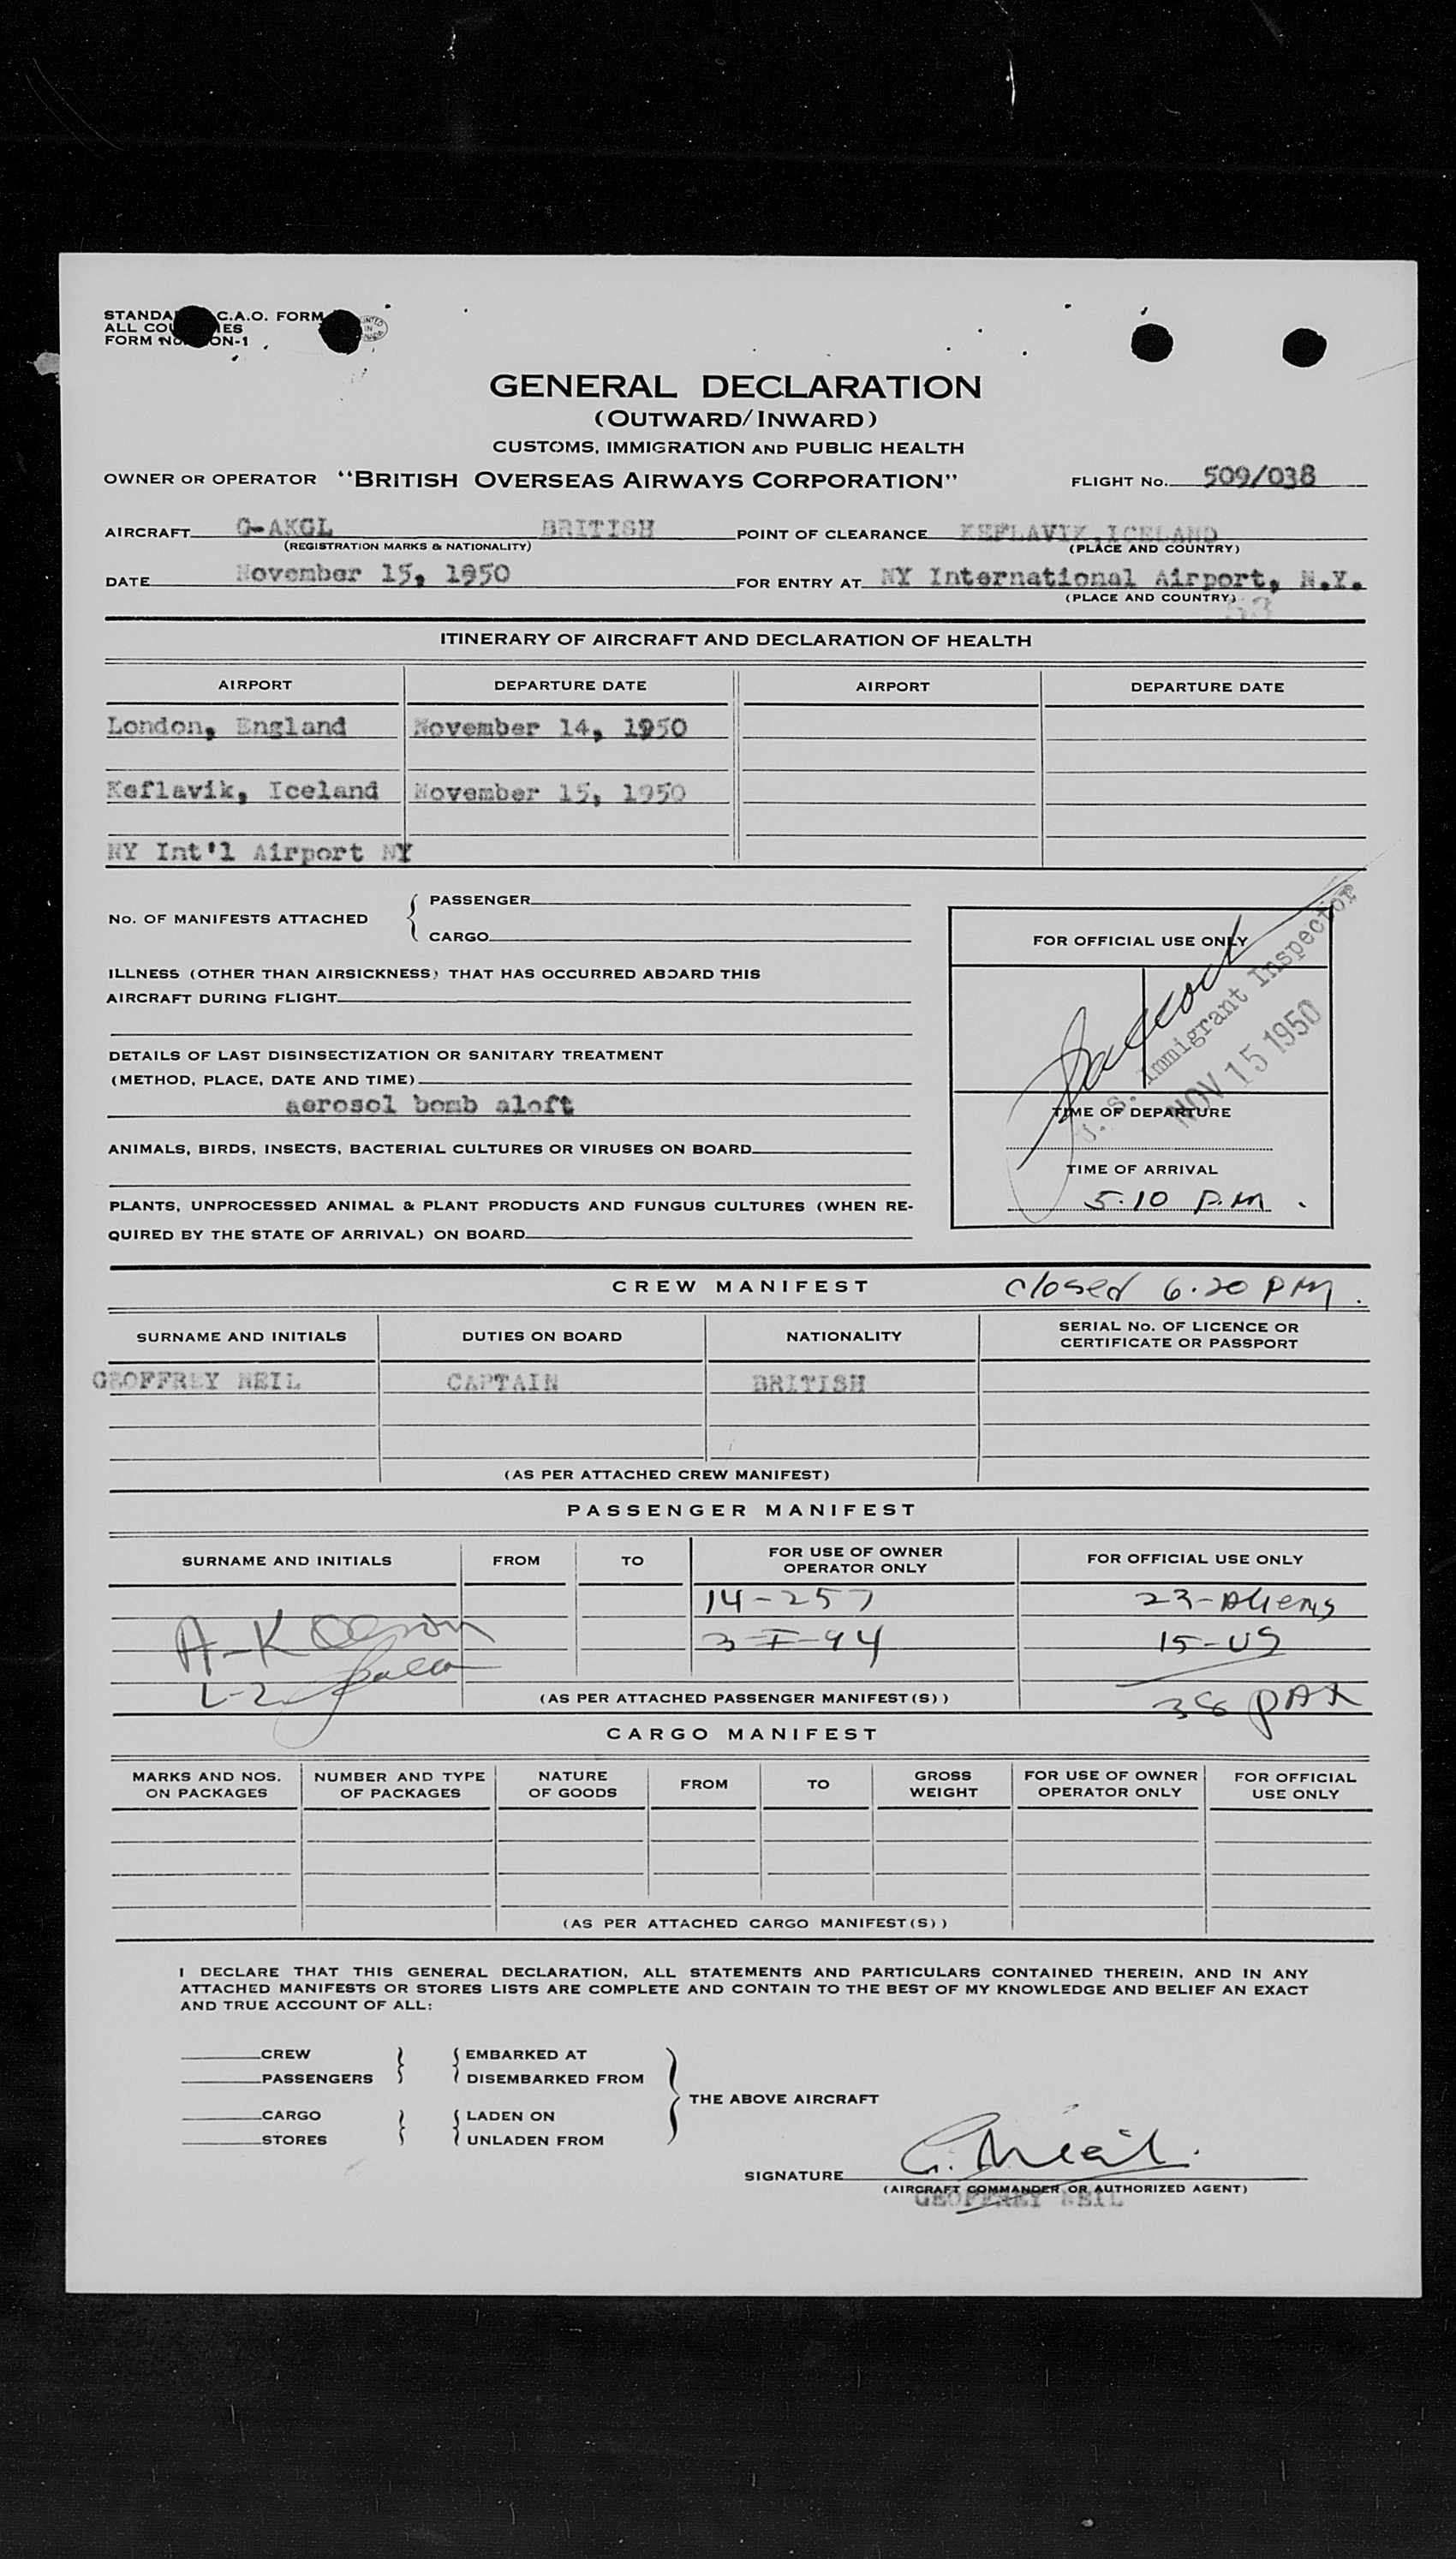 C.A.O. FORM
ALL
FORM
GENERAL DECLARATION
(OUTWARD/INWARD)
CUSTOMS, IMMIGRATION AND PUBLIC HEALTH
OWNER OR OPERATOR "BRITISH OVERSEAS AIRWAYS CORPORATION" FLIGHT No. 509/038
AIRCRAFT G-AKGL BRITISH POINT OF CLEARANCE KEFLAVIK, ICELAND
(REGISTRATION MARKS & NATIONALITY) (PLACE AND COUNTRY)
DATE November 15, 1950 FOR ENTRY AT NY International Airport, N.Y.
(PLACE AND COUNTRY)
ITINERARY OF AIRCRAFT AND DECLARATION OF HEALTH
AIRPORT DEPARTURE DATE AIRPORT DEPARTURE DATE
London, England November 14, 1950
Keflavik, Iceland November 15, 1950
NY Int'l Airport NY
No. OF MANIFESTS ATTACHED { PASSENGER
CARGO
ILLNESS (OTHER THAN AIRSICKNESS) THAT HAS OCCURRED ABOARD THIS
AIRCRAFT DURING FLIGHT
DETAILS OF LAST DISINSECTIZATION OR SANITARY TREATMENT
(METHOD, PLACE, DATE AND TIME)
aerosol bomb aloft
ANIMALS, BIRDS, INSECTS, BACTERIAL CULTURES OR VIRUSES ON BOARD
PLANTS, UNPROCESSED ANIMAL & PLANT PRODUCTS AND FUNGUS CULTURES (WHEN RE-
QUIRED BY THE STATE OF ARRIVAL) ON BOARD
FOR OFFICIAL USE ONLY
U.S. Immigrant Inspector
NOV 15 1950
TIME OF DEPARTURE
TIME OF ARRIVAL
5.10 P.M.
CREW MANIFEST closed 6.20 PM.
SURNAME AND INITIALS DUTIES ON BOARD NATIONALITY SERIAL No. OF LICENCE OR
CERTIFICATE OR PASSPORT
GEOFFREY NEIL CAPTAIN BRITISH
(AS PER ATTACHED CREW MANIFEST)
PASSENGER MANIFEST
SURNAME AND INITIALS FROM TO FOR USE OF OWNER
OPERATOR ONLY FOR OFFICIAL USE ONLY
14-257 23-Aliens
3-I-94 15-US
(AS PER ATTACHED PASSENGER MANIFEST(S)) 38 PAX
CARGO MANIFEST
MARKS AND NOS.
ON PACKAGES NUMBER AND TYPE
OF PACKAGES NATURE
OF GOODS FROM TO GROSS
WEIGHT FOR USE OF OWNER
OPERATOR ONLY FOR OFFICIAL
USE ONLY
(AS PER ATTACHED CARGO MANIFEST(S))
I DECLARE THAT THIS GENERAL DECLARATION, ALL STATEMENTS AND PARTICULARS CONTAINED THEREIN, AND IN ANY
ATTACHED MANIFESTS OR STORES LISTS ARE COMPLETE AND CONTAIN TO THE BEST OF MY KNOWLEDGE AND BELIEF AN EXACT
AND TRUE ACCOUNT OF ALL:
CREW } { EMBARKED AT
PASSENGERS DISEMBARKED FROM
THE ABOVE AIRCRAFT
CARGO } { LADEN ON
STORES UNLADEN FROM
SIGNATURE G. Neil.
(AIRCRAFT COMMANDER OR AUTHORIZED AGENT)
GEOFFREY NEIL